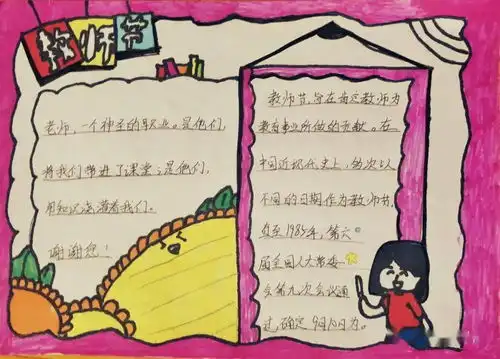 教师节
老师，一个神圣的职业。是他们，
将我们带进了课堂；是他们，
用知识滋灌着我们。
谢谢您！
教师节，旨在肯定教师为
教育事业所做的贡献。在
中国近现代史上，多次以
不同的日期作为教师节，
直至1985年，第六
届全国人大常委
会第九次会议通
过，确定9月10日为。